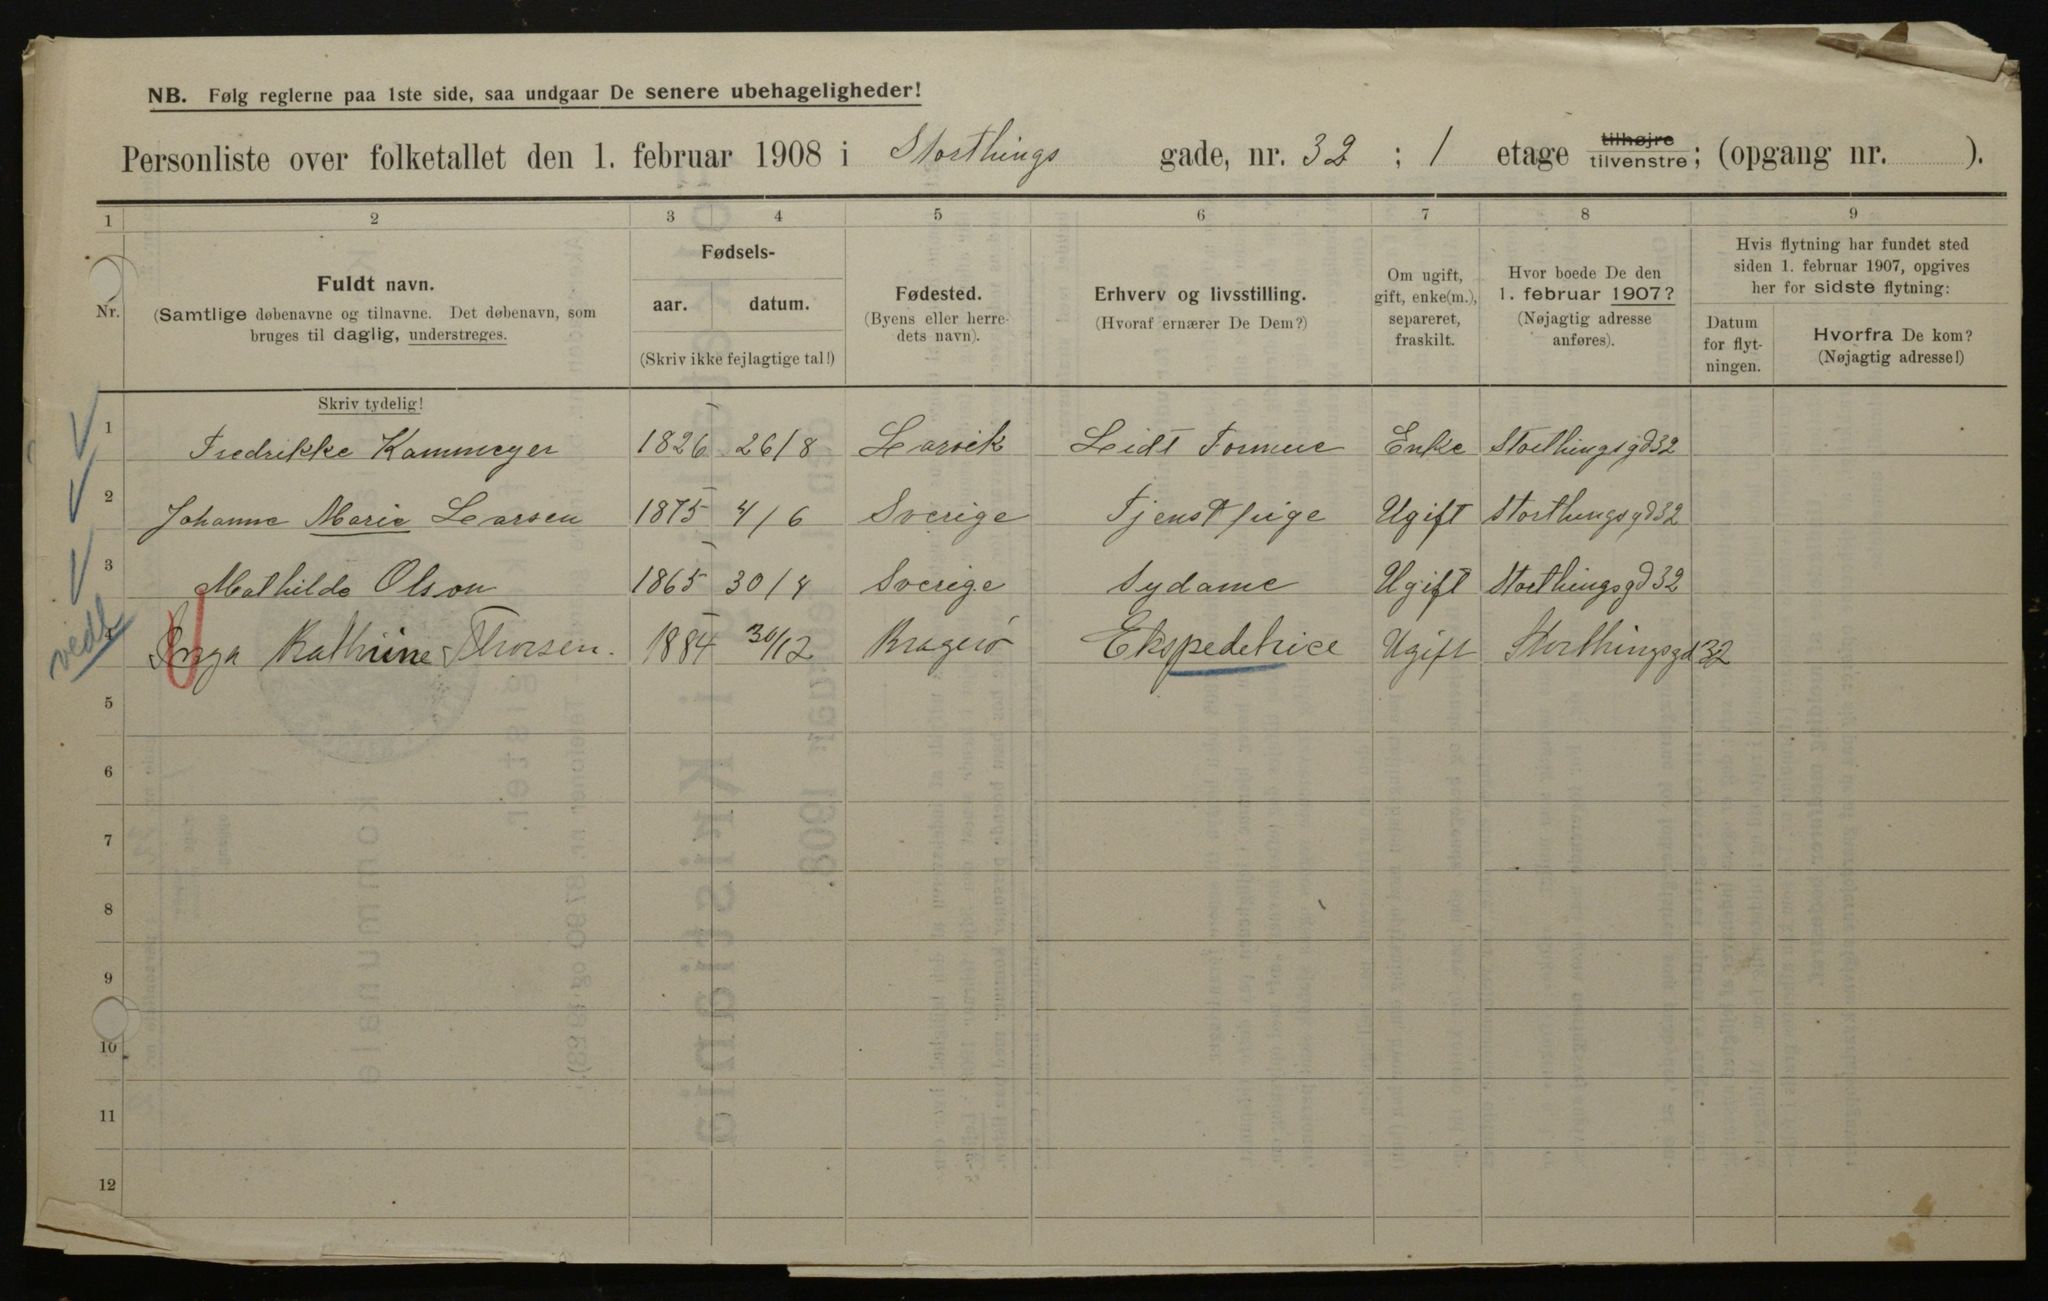 NB. Følg reglerne paa 1ste side, saa undgaar De senere ubehageligheder!
Personliste over folketallet den 1. februar 1908 i Storthings gade, nr. 32 ; 1 etage tilhøjre tilvenstre; (opgang nr. ).
1 2 3 4 5 6 7 8 9
Nr.
Fuldt navn.
(Samtlige døbenavne og tilnavne. Det døbenavn, som
bruges til daglig, understreges.
Fødsels-
aar. datum.
(Skriv ikke fejlagtige tal!)
Fødested.
(Byens eller herre-
dets navn).
Erhverv og livsstilling.
(Hvoraf ernærer De Dem?)
Om ugift,
gift, enke(m.),
separeret,
fraskilt.
Hvor boede De den
1. februar 1907?
(Nøjagtig adresse
anføres).
Hvis flytning har fundet sted
siden 1. februar 1907, opgives
her for sidste flytning:
Datum
for flyt-
ningen.
Hvorfra De kom?
(Nøjagtig adresse!)
Skriv tydelig!
1 Fredrikke Kammeyer 1826 26/8 Larvik Leidt Formue Enke Storthingsgd 32
2 Johanne Marie Larsen 1875 4/6 Sverige Tjenstpige Ugift Storthingsgd 32
3 Mathilde Olson 1865 30/4 Sverige Sydame Ugift Storthingsgd 32
vedl. 4 Inga Kathrine Thorsen. 1884 30/12 Kragerö Ekspedetrice Ugift Storthingsgd 32
5
6
7
8
9
10
11
12